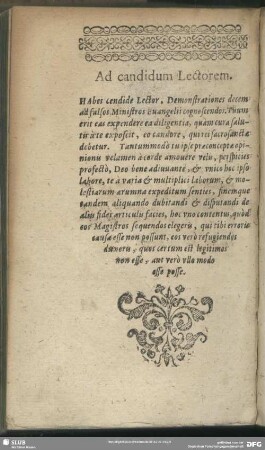 Ad candidum Lectorem.
HAbes candide Lector, Demonstrationes decem
ad falsos Ministros Euangelii cognoscendos. Tuum
erit eas expendere ea diligentia, quam cura salu-
tis à te exposcit, eo candore, qui rei sacrosanctæ
debetur. Tantummodo tu ipse præconceptæ opi-
nionis velamen à corde amouere velis, perspicies
profectò, Deo bene adiuuante, & vnico hoc ipso
labore, te à varia & multiplici laborum, & mo-
lestiarum ærumna expeditum senties, finemque
tandem aliquando dubitandi & disputandi de
aliis fidei articulis facies, hoc vno contentus, quòd
eos Magistros sequendos elegeris, qui tibi erroris
causa esse non possunt, eos verò refugiendos
duxeris, quos certum est legitimos
non esse, aut verò vllo modo
esse posse.
SLUB
DFG